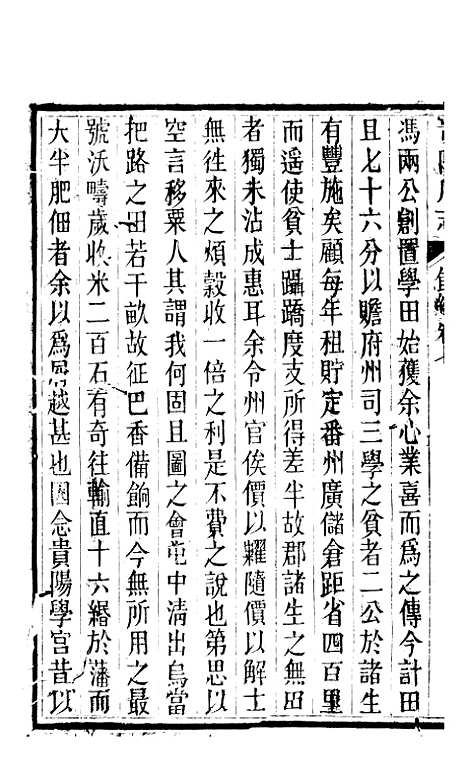 馮兩公創置學田始獲余心業喜而為之傳今計田
且七十六分以贍府州司三學之貧者二公於諸生
有豐施矣顧每年租貯定番州廣儲倉距省四百里
而遥使貧士躡蹻度支所得差半故郡諸生之無田
者獨未沾成惠耳余令州官俟價以糶隨價以解士
無徃來之煩穀收一倍之利是不費之說也第思以
空言移粟人其謂我何固且圖之會屯中清出烏當
把路之田若干畝故征巴香備餉而今無所用之最
號沃疇歲收米二百石有奇往輸直十六緡於藩而
大半肥佃者余以為越甚也因念貴陽學宮昔以